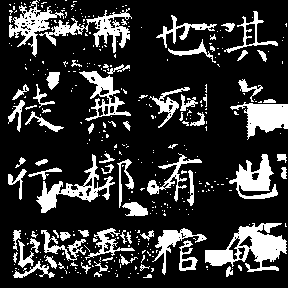 其子也鯉
也死有棺
而無槨吾
不徒行以